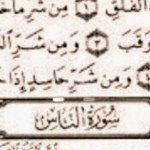 ٱلْفَلَقِ ١ مِن شَرِّ مَا خَ
وَقَبَ ٣ وَمِن شَرِّ ٱلنَّ
٤ وَمِن شَرِّ حَاسِدٍ إِذَا حَ
سُورَةُ النَّاسِ